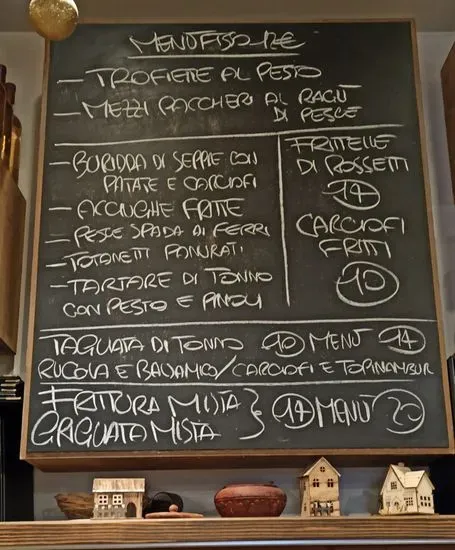 MENÙ FISSO 12€
- TROFIETTE AL PESTO
- MEZZI PACCHERI AL RAGÙ
DI PESCE
- BURIDDA DI SEPPIE CON
PATATE E CARCIOFI
- ACCIUGHE FRITTE
- PESCE SPADA AI FERRI
- TOTANETTI PANURATI
- TARTARE DI TONNO
CON PESTO E PINOLI
FRITTELLE
DI ROSSETTI
14
CARCIOFI
FRITTI
10
TAGLIATA DI TONNO 10 MENÙ 14
RUCOLA E BALSAMICO/CARCIOFI E TOPINAMBUR
FRITTURA MISTA } 14 MENÙ 20
GRIGLIATA MISTA